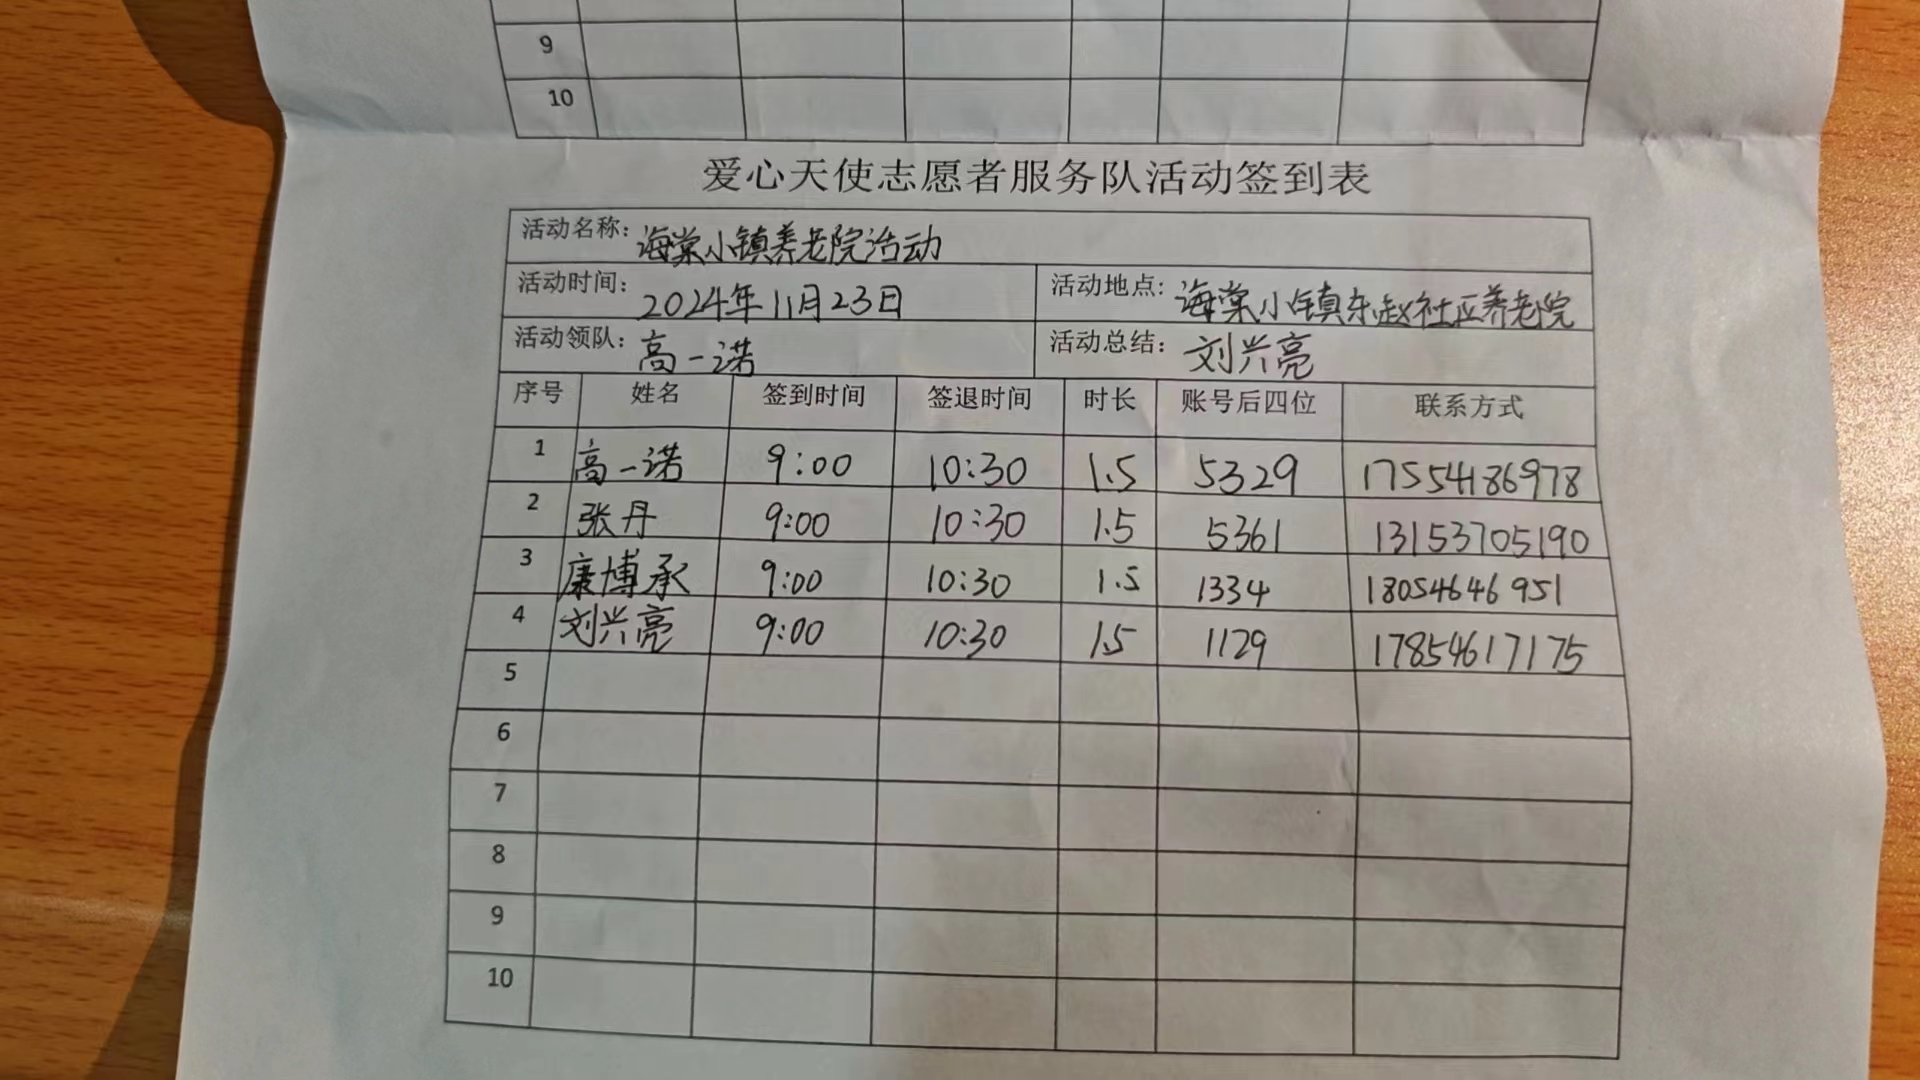 9
10
爱心天使志愿者服务队活动签到表
活动名称: 海棠小镇养老院活动
活动时间: 2024年11月23日 活动地点: 海棠小镇东赵社区养老院
活动领队: 高一诺 活动总结: 刘兴亮
序号 姓名 签到时间 签退时间 时长 账号后四位 联系方式
1 高一诺 9:00 10:30 1.5 5329 17554186978
2 张丹 9:00 10:30 1.5 5361 13153705190
3 康博承 9:00 10:30 1.5 1334 18054646951
4 刘兴亮 9:00 10:30 1.5 1129 17854617175
5
6
7
8
9
10